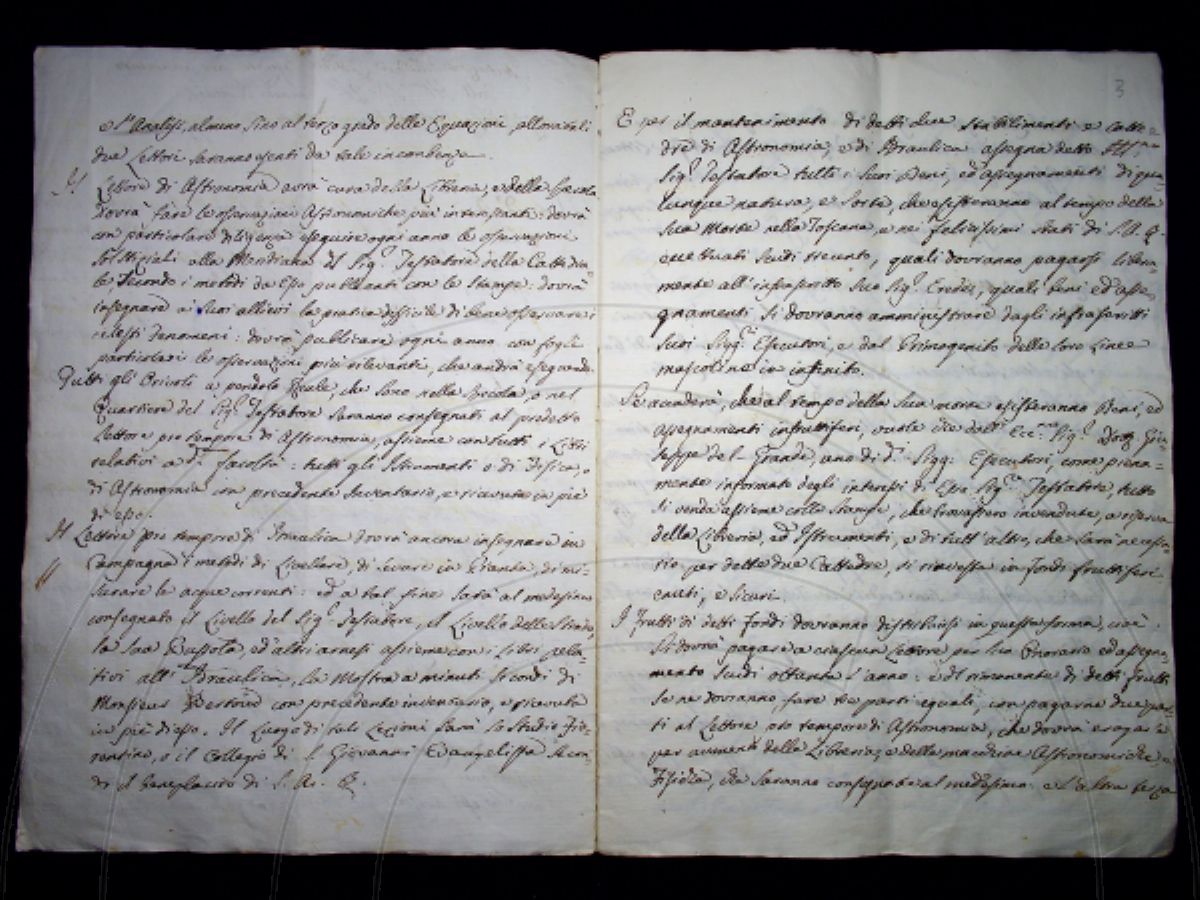 e l'Analisi, almeno sino al terzo grado delle Equazioni, per
due Lettori saranno esenti da tale incombenza.
Il Lettore di Astronomia avrà cura della Libreria, e della Specola
Dovrà fare le osservazioni Astronomiche più importanti: dovrà
con particolare diligenza eseguire ogni anno le osservazioni
Solstiziali alla Meridiana del Sig.r Testatore della Cattedra
le, secondo i metodi da Esso pubblicati con le Stampe: dovrà
insegnare ai suoi allievi la pratica difficile di bene osservare i
celesti Fenomeni: dovrà publicare ogni anno con fogli
particolari le osservazioni più rilevanti, che andrà eseguendo.
Tutti gli Orivoli a pendolo Reale, che sono nella Specola, o nel
Quartiere del Sig.r Testatore saranno consegnati al predetto
Lettore pro tempore di Astronomia, assieme con tutti i Libri
relativi a d.a facoltà: tutti gli Istrumenti o di Fisica, o
di Astronomia con precedente Inventario, e ricevuta in piè
di esso.
Il Lettore pro tempore di Idraulica dovrà ancora insegnare in
Campagna i metodi di Livellare, di levare in Pianta, di mi-
surare le acque correnti: ed a tal fine sarà al medesimo
consegnato il Livello del Sig.r Testatore, il Livello delle Strade,
la sua Bussola, ed altri arnesi assieme con i Libri rela-
tivi all'Idraulica, la Mostra a minuti secondi di
Monsieur Bertoud con precedente inventario, e ricevuta
in piè di esso. Il Luogo di tali Lezioni sarà lo Studio Fio-
rentino, o il Collegio di S. Giovanni Evangelista secon-
do il beneplacito di S. A. R.
3
E per il mantenimento di detti due stabilimenti e catte-
dre di Astronomia, e di Idraulica assegna detto Ill.mo
Sig.r Testatore tutti i suoi Beni, ed assegnamenti di qua-
lunque natura, e sorte, che esisteranno al tempo della
sua Morte nella Toscana, e nei felicissimi Stati di S. A. R.
eccettuati Scudi trecento, quali dovranno pagarsi libera-
mente all'infrascritto suo Sig.r Erede, quali beni ed asse-
gnamenti si dovranno amministrare dagli infrascritti
suoi Sigg.ri Esecutori, e dal Primogenito delle loro Linee
mascoline in infinito.
Se accaderà, che al tempo della sua morte esisteranno Beni, ed
assegnamenti infruttiferi, vuole che dell'Ecc.mo Sig.r Dott. Giu-
seppe del Grande, uno di d.i Sigg.ri Esecutori, come piena-
mente informato degli interessi di Esso Sig.r Testatore, tutto
si venda assieme colle Stampe, che trovassero invendute, a riserva
della Libreria, ed Istrumenti, e di tutt'altro, che sarà necessa-
rio per dette due Cattedre, si rinvesta in fondi fruttiferi
cauti, e sicuri
I frutti di detti fondi dovranno distribuirsi in questa forma, cioè.
Si dovrà pagare a ciascun Lettore per suo Onorario ed assegna-
mento Scudi ottanta l'anno: e del rimanente di detti frutti
se ne dovranno fare tre parti eguali, con pagarne due par-
ti al Lettore pro tempore di Astronomia, che dovrà erogarle
per aumento della Libreria, e delle macchine Astronomiche e
Fisiche, che saranno consegnate al medesimo: e l'altra terza